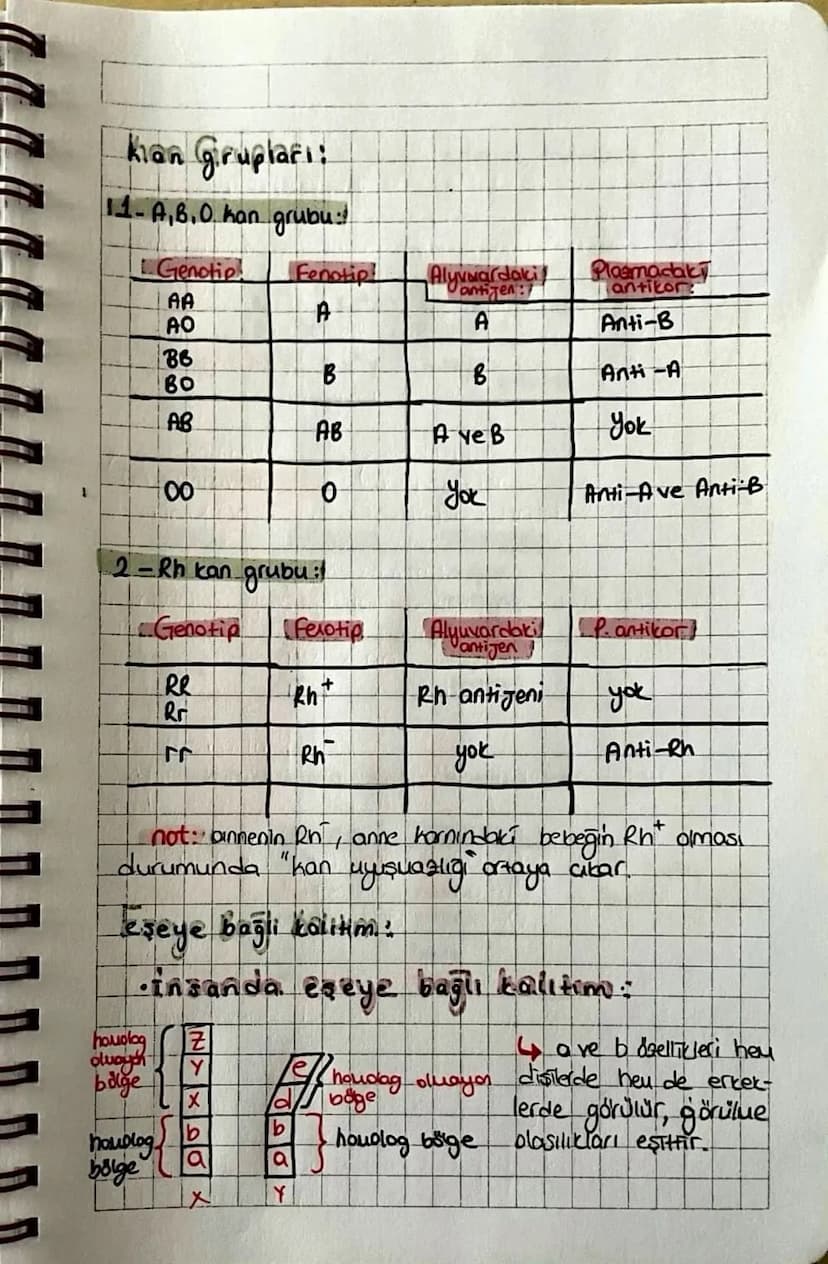 Kan Grupları:
1-A,B,O kan grubu:
Genotip Fenotip Alyuvardaki antijen: Plazmadaki antikor:
AA
AO A A Anti-B
BB
BO B B Anti-A
AB AB A ve B Yok
OO O Yok Anti-A ve Anti-B
2-Rh kan grubu:
Genotip Fenotip Alyuvardaki antijen P. antikor
RR
Rr Rh+ Rh antijeni yok
rr Rh- yok Anti-Rh
not: annenin Rh-, anne karnındaki bebeğin Rh+ olması
durumunda "kan uyuşmazlığı" ortaya çıkar.
Eşeye bağlı kalıtım:
•İnsanda eşeye bağlı kalıtım:
homolog
olmayan
bölge
Z
Y
X
homolog
bölge
b
a
X
e
d
homolog olmayan
bölge
b
a
homolog bölge
Y
↳ a ve b özellikleri hem
dişilerde hem de erkek-
lerde görülür, görülme
olasılıkları eşittir.